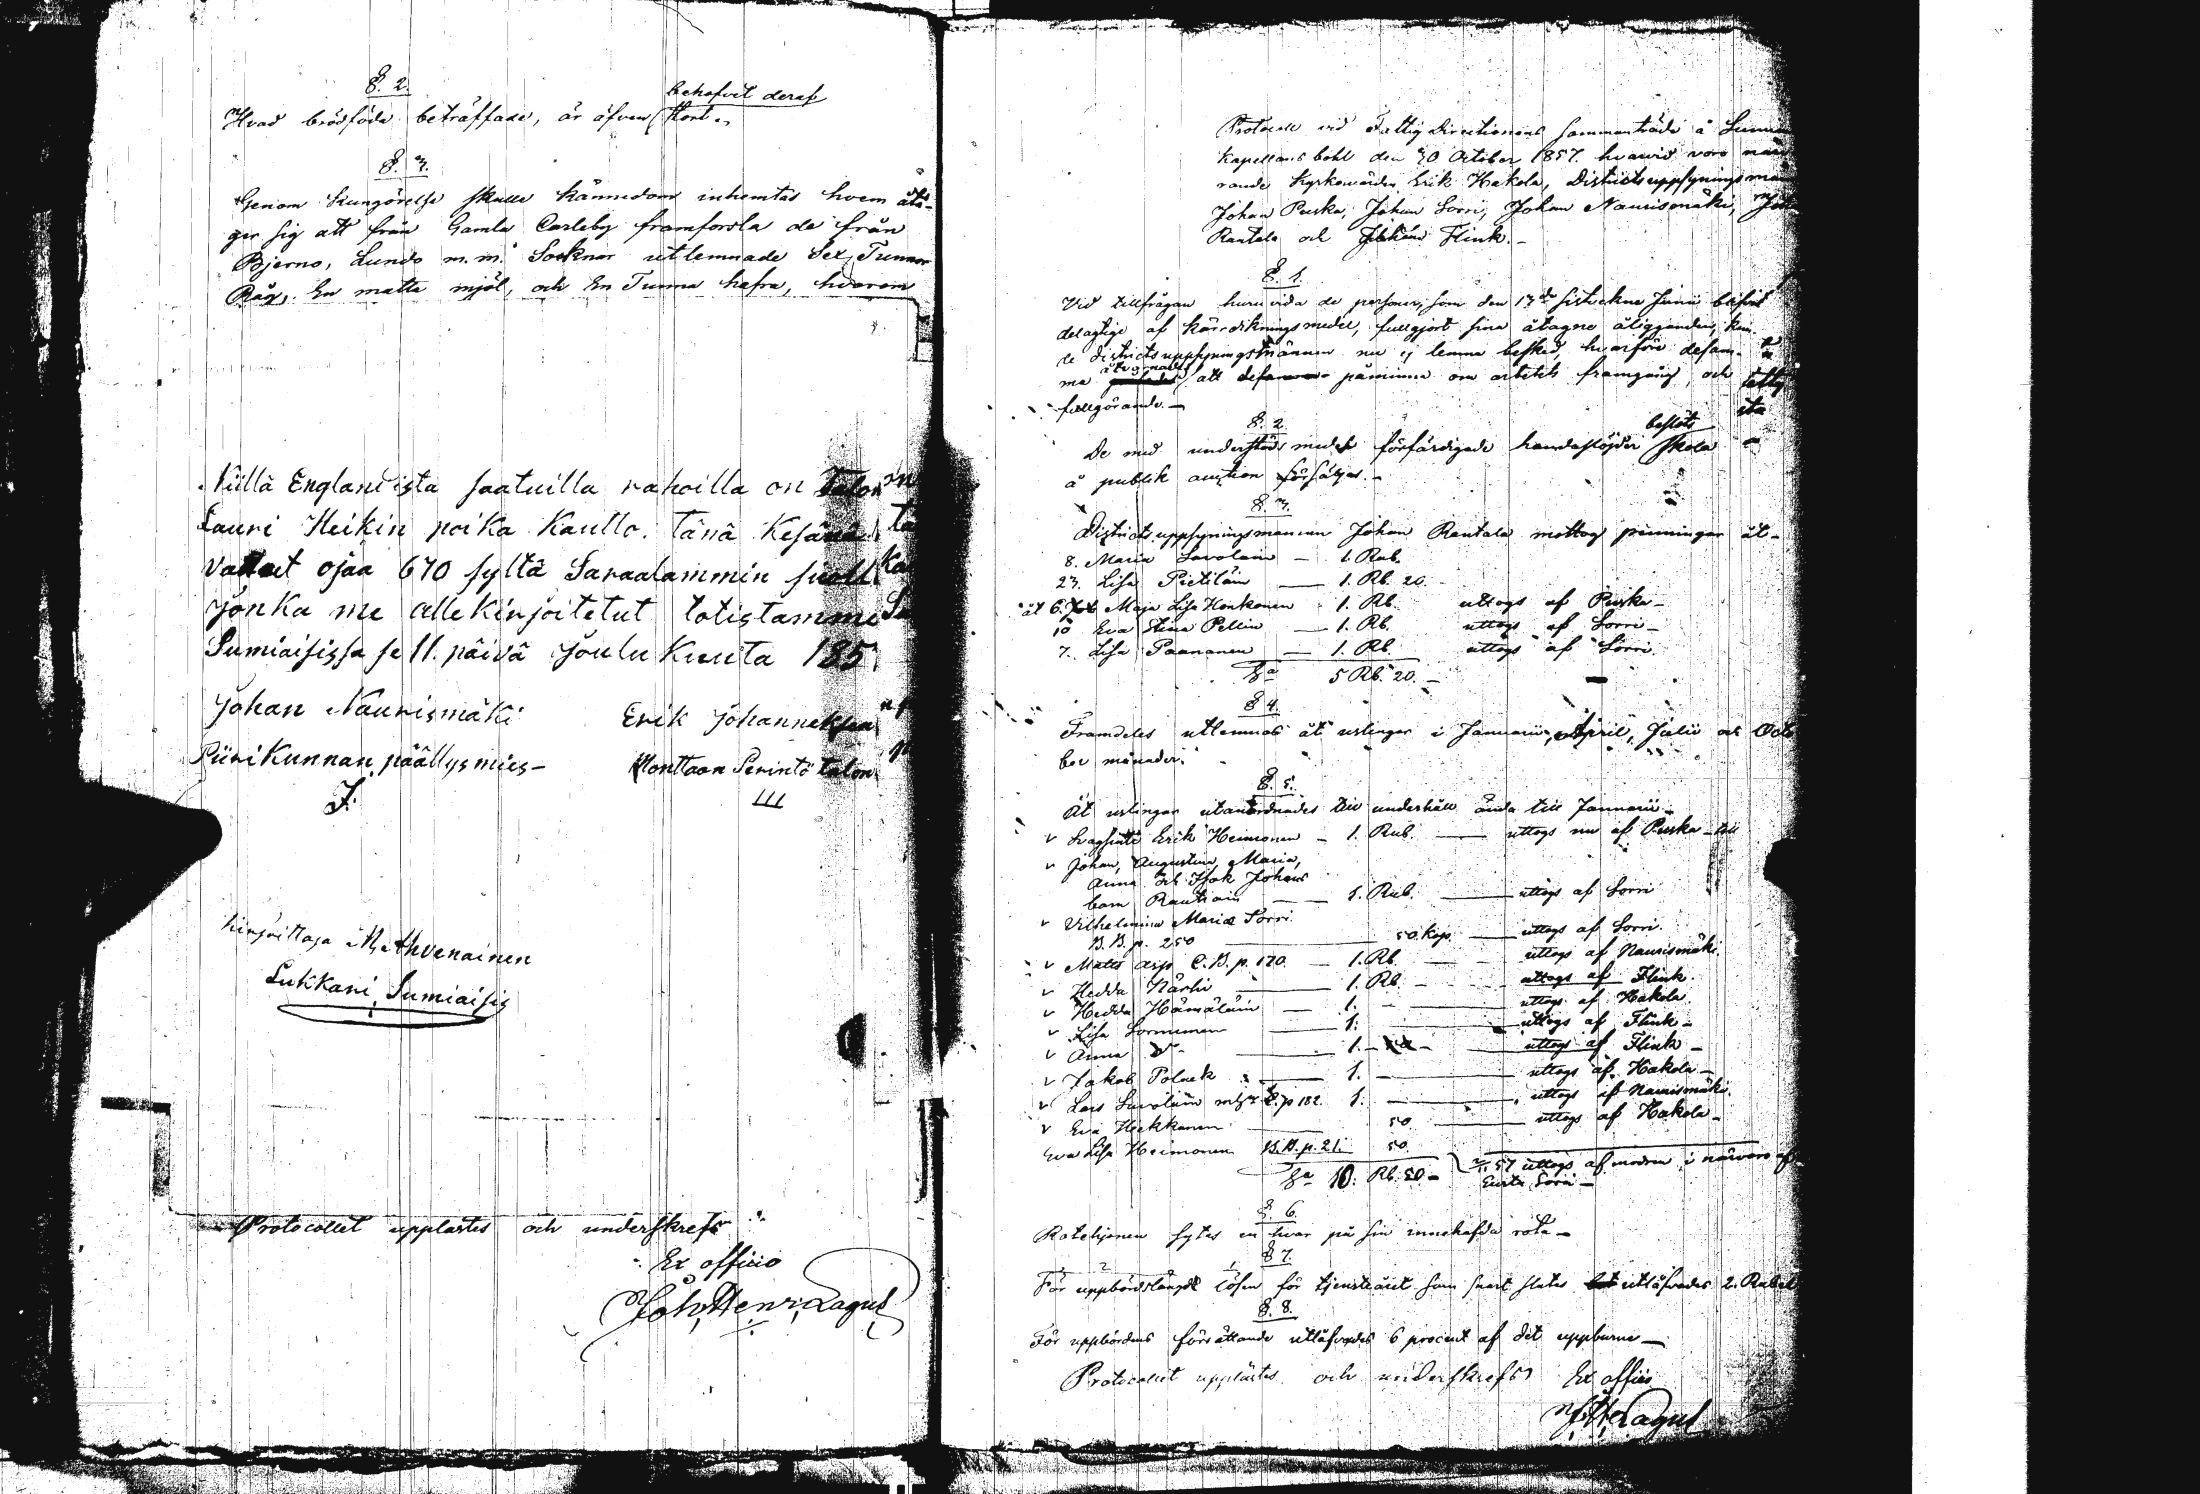 §. 2.
behofvet deraf
Hvad brödföda beträffade, är äfven stort.
§. 3.
Genom kungörelse skulle kännedom inhemtas hvem åta-
ger sig att från Gamla Carleby framforsla de från
Bjerno, Lundo m.m. Socknar utlemnade Sex Tunnor
Råg, En matta mjöl, och En Tunna hafra, hvarom
Niillä Englandista saatuilla rahoilla on Talon
Lauri Heikin poika Kautto. Tänä Kesänä
vallut ojaa 670 syltä Saraalammin suoll
Jonka me allekirjoitetut totistamme
Sumiaisissa se 11. päivä Joulu Kuuta 185
Johan Naurismäki Erik Johanneksen
Piiri Kunnan päällysmies- Honttaon Perintö talon
J.
kirjoittaja M. Athvenainen
Lukkari, Sumiaisis
Protocollet upplästes och underskrefs
Ex officio
Joh. Henr. Lagus
Protocoll vid Fattig Directionens sammanträde å
Kapellans bohl den 30 October 1857. hvarvid voro när
rande Kyrkovärden Erik Hakola, Districtsuppsyningsmän
Johan Puska, Johan Sorri, Johan Naurismäki,
Rantala och Johan Flink.-
§. 1.
Vid tillfrågan huruvida de personer, som den 13de sistvekne Junii blifvit
delagtige af kärrdikningsmedel, fullgjort sina åtagne åligganden, kun-
de districtsuppsyningsmännen nu ej lemna besked, hvarföre desam-
ma att påminna om arbetets framgång, och
fullgörande.-
§. 2.
beslöts
De med understöds medel förfärdigade handaslöjder skola
å publik auction försäljas.-
§. 3.
Districtsuppsyningsmannen Johan Rantala mottog penningar åt-
8. Maria Savolain - 1. Rub.
23. Lisa Pietiläin - 1. Rb. 20.
åt 6. Maja Lisa Honkonen - 1. Rb. uttogs af Puska-
10 Eva Stina Pellin - 1. Rb. uttogs af Sorri-
7. Lisa Paananen - 1. Rb. uttogs af Sorri.
Sa 5 Rb. 20.-
§ 4.
Framdeles utlemnas åt uslingar i Januarii, April, Julii och Octo
ber månader.
§. 5.
Åt uslingar utanordnades till underhåll ända till Januarii-
Svagsinte Erik Heimonen - 1. Rub. - uttogs nu af Puska-
Johan, Augustina, Maria,
Anna och Isak Johans
barn Rautiain - 1. Rub. - uttogs af Sorri
Vilhelmina Maria Sorri
B.B.p. 250 - 50 Kop. - uttogs af Sorri.
Matts Asp C.B.p. 170. - 1. Rb. - uttogs af Naurismäki.
Hedda Närhi - 1. Rb. - uttogs af Flink.
Hedda Hämäläin - 1. - uttogs af Hakola
Lisa Sormunen - 1. - uttogs af Flink-
Anna Do - 1. - uttogs af Flink-
Jakob Polack - 1. - uttogs af Hakola-
Lars Savolain p 182. 1. - uttogs af Naurismäki.
Eva Hekkanen - 50 - uttogs af Hakola-
Eva Lisa Heimonen B.B.p. 21. 50.
57 uttogs af modren i närvaro af
Sa 10. Rb. 50-
Sorri-
§ 6.
Rotehjonen sytas en hvar på sin innehafda rota-
§ 7.
För uppbördslängds lösen för tjensteåret som snart slutar utläfvades 2. Rubel
§. 8.
För uppbördens försättande utläfvades 6 procent af det uppburna-
Protocollet upplästes och underskrefs Ex officio
J. H. Lagus